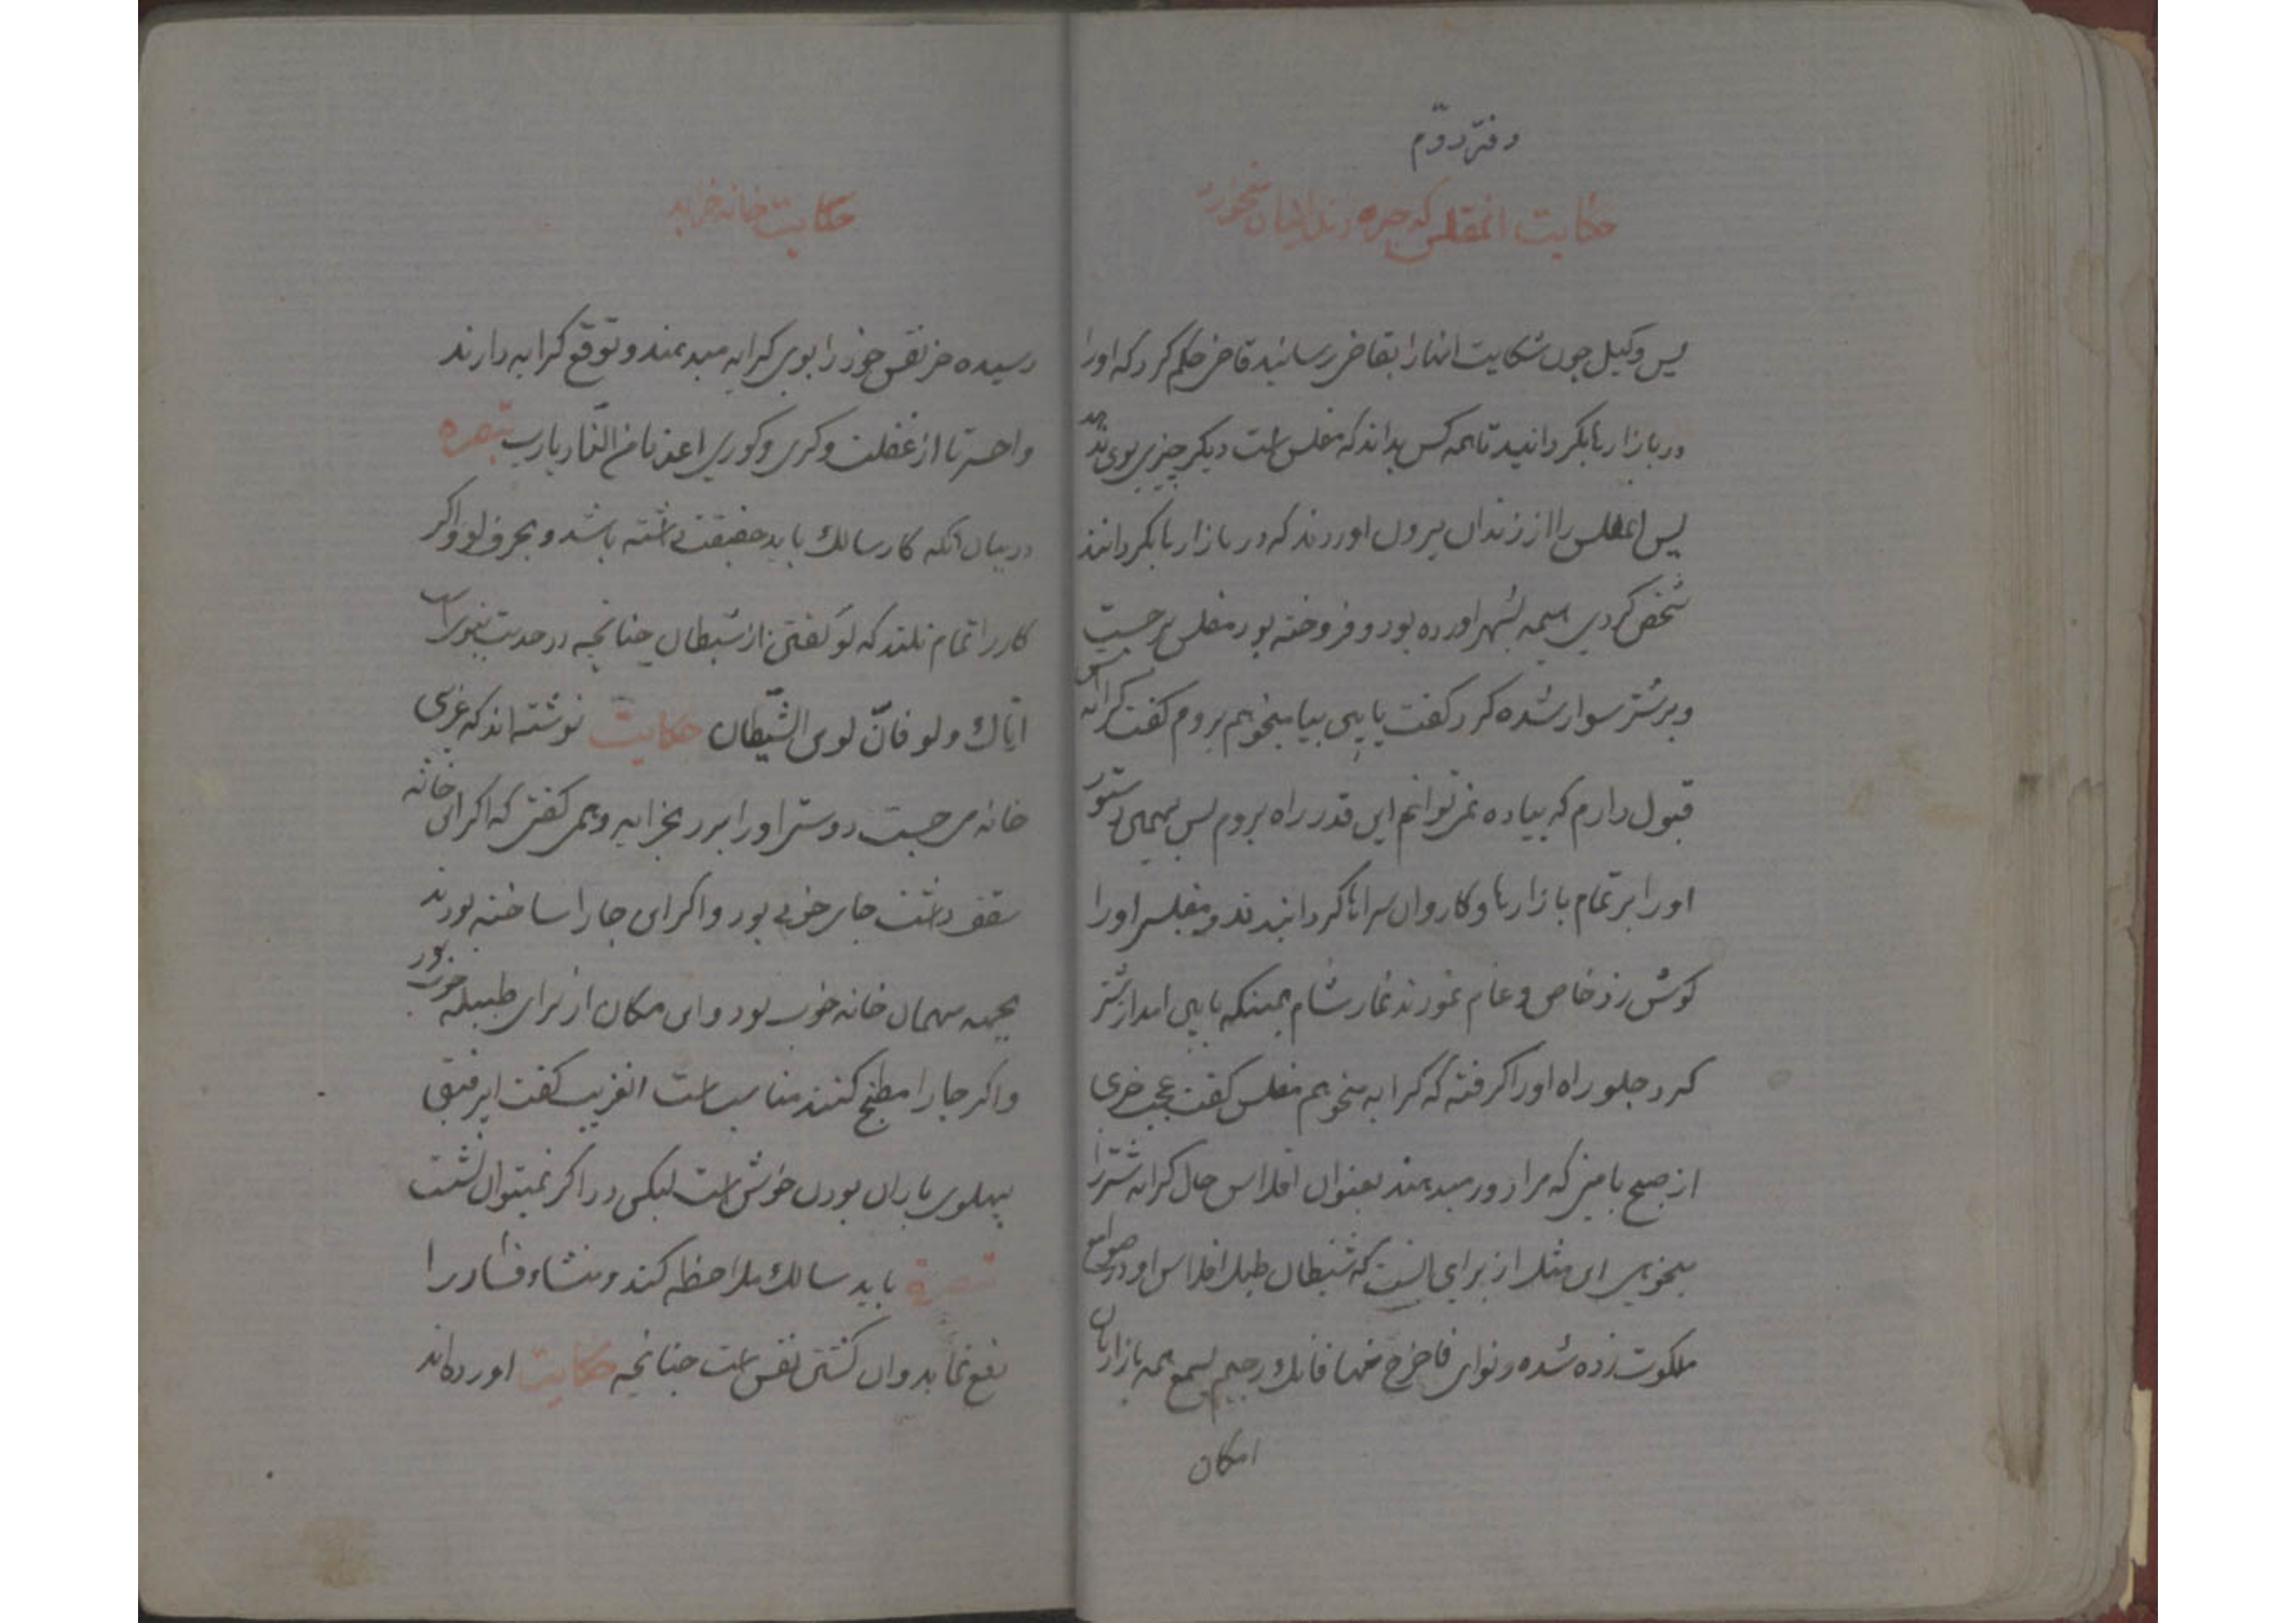 دفتر دوّم
حکایت انمفلس که جیره زندانیان میخورد
پس وکیل چون شکایت انها را بقاضی رسانید قاضی حکم کرد که او را
در بازارها بگردانید تا همه کس بداند که مفلس است دیگر چیزی بوی ندهد
پس انمفلس را از زندان بیرون اوردند که در بازارها بگردانند
شخص کردی هیمه بشهر اورده بود و فروخته بود مفلس برجست
و بر شتر سوار شده کرد گفت پایین بیا میخواهم بروم گفت کرایه اش
قبول دارم که پیاده نمی توانم این قدر راه بروم پس بهمین دستور
او را بر تمام بازارها و کاروان سراها گردانیدند و مفلسی او را
گوش زد خاص و عام نمودند نماز شام همینکه پایین امد از شتر
کرد جلو راه او را گرفته که کرایه میخواهم مفلس گفت عجب خری
از صبح با منی که مرا دور میدهند بعنوان افلاس حال کرایه شتر را
میخواهی این مثل از برای انست که شیطان طبل افلاس او در صوامع
ملکوت زده شده و نوای فاخرج منها فانک رجیم بسمع همه بازاریان
امکان
حکایت خانه خرابه
رسیده خر نفس خود را بوی کرایه میدهند و توقع کرایه دارند
واحسرتا از غفلت و کری و کوری اعذنا من النّار یا رب تبصره
در بیان آنکه کار سالک باید حقیقت داشته باشد و بحرف لو و اگر
کار را تمام نکند که لو گفتن از شیطان چنانچه در حدیث نبوی است
ایّاک و لو فانّ لو من الشّیطان حکایت نوشته‌اند که غریبی
خانه می جست دوستی او را برد بخرابه و همی گفتی که اگر این خانه
سقف داشت جای خوبی بود و اگر این جا را ساخته بودند
بجهه مهمان خانه خوب بود و این مکان از برای طبیله خوب بود
و اگر جا را مطبخ کنند مناسب است انغریب گفت ای رفیق
پهلوی یاران بودن خوش است لیکن در اگر نمیتوان نشست
تبصرة باید سالک ملاحظه کند و منشاء فساد را
رفع نماید و ان کشتن نفس است چنانچه حکایت اورده‌اند